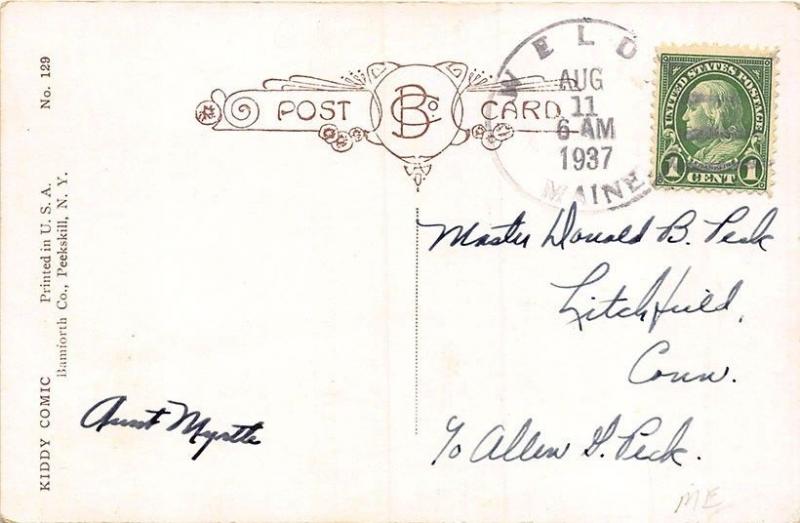 KIDDY COMIC Printed in U. S. A. No. 129
Bamforth Co., Peekskill, N. Y.
POST BCo CARD
WELD
AUG
11
6-AM
1937
MAINE
UNITED STATES POSTAGE
1 CENT 1
Master Donald B. Peck
Litchfield,
Conn.
c/o Allen G. Peck.
Aunt Myrtle
ME